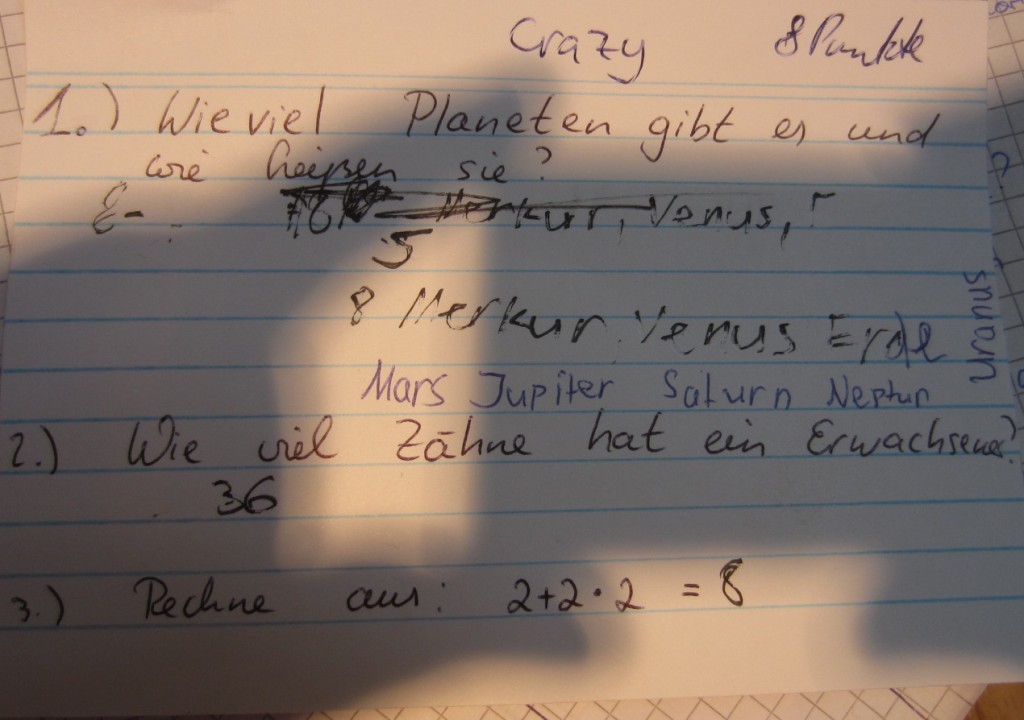 Crazy 8 Punkte
1.) Wie viel Planeten gibt es und
wie heißen sie?
Merkur, Venus,
5
8 Merkur Venus Erde
Mars Jupiter Saturn Neptun
Uranus
2.) Wie viel Zähne hat ein Erwachsener?
36
3.) Rechne aus: 2+2·2 = 8